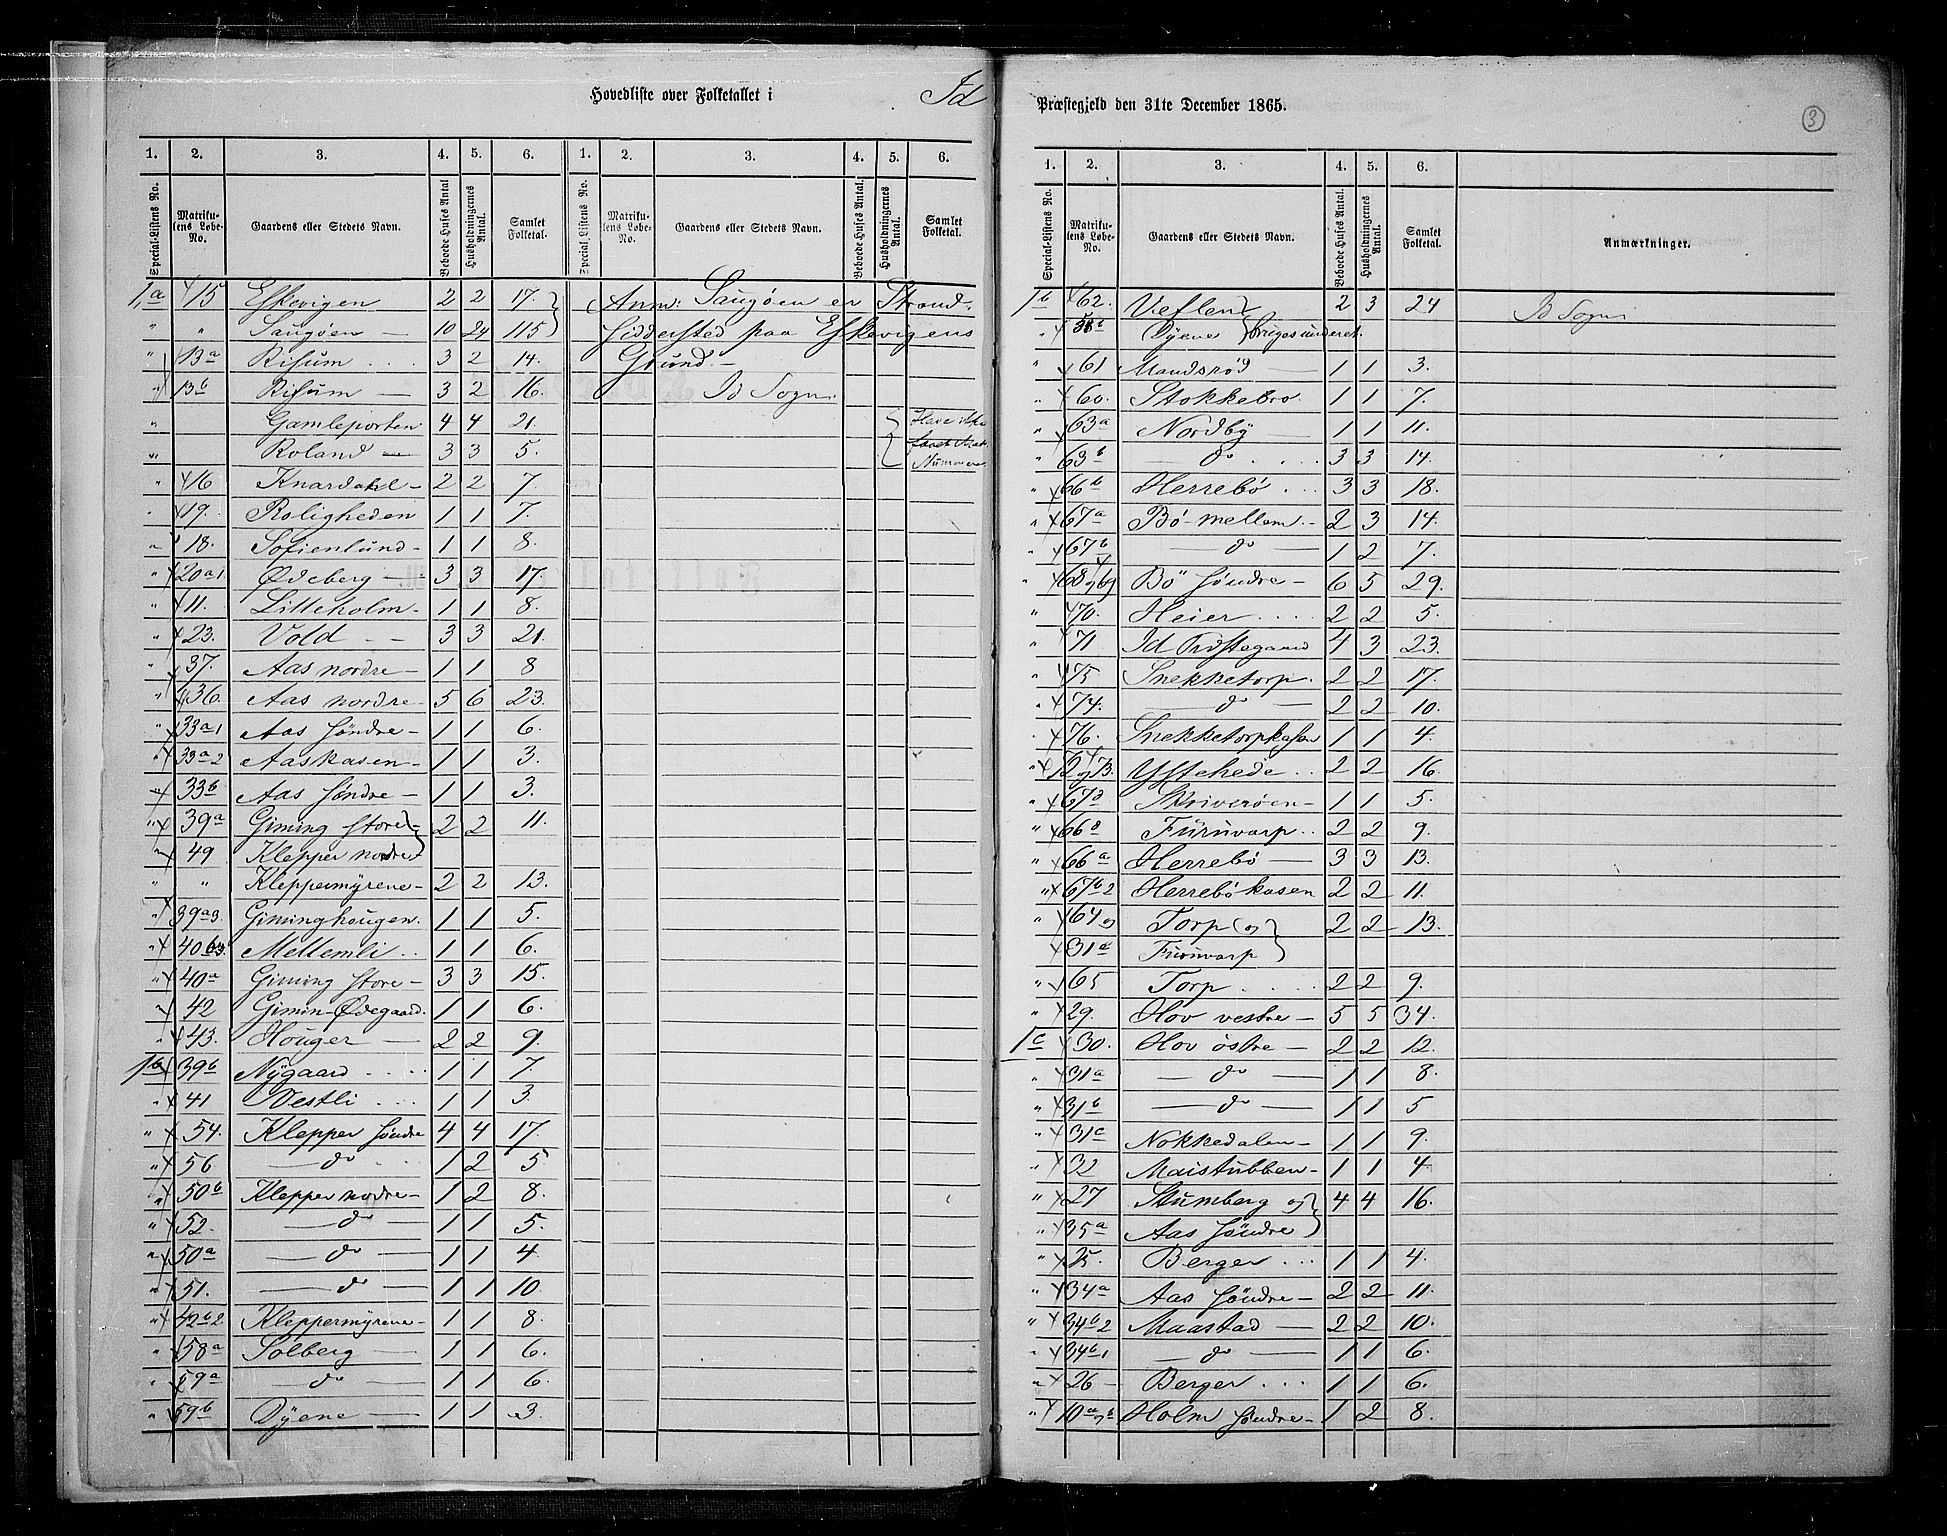 Hovedliste over Folketallet i Id
1. 2. 3. 4. 5. 6. 1. 2. 3. 4. 5. 6.
Special-Listens No. Matrikulens Løbe-No. Gaardens eller Stedets Navn. Beboede Huses Antal Husholdningernes Antal. Samlet Folketal. Special-Listens No. Matrikulens Løbe-No. Gaardens eller Stedets Navn. Beboede Huses Antal. Husholdningernes Antal. Samlet Folketal.
1,a 15 Eskevigen 2 2 17. Anm: Saugøen er Strand-
" " Saugøen 10 24 115 sidderstød paa Eskevigens
" 13a Risum 3 2 14. Grund.
" 13b Risum 3 2 16. Id Sogn.
" Gamleporten 4 4 21. Have ikke
" Roland 3 3 5. Nummer
" 16 Knardahl 2 2 7.
" 19. Roligheden 1 1 7.
" 18. Sofienlund 1 1 8.
" 20a1 Ødeberg 3 3 17.
" 11. Lilleholm 1 1 8.
" 23. Vold 3 3 21.
" 37. Aas nordre 1 1 8
" 36. Aas nordre 5 6 23.
" 33a1 Aas søndre 1 1 6.
" 33a2 Aaskasen 1 1 3.
" 33b Aas søndre 1 1 3.
" 39a Giming store 2 2 11.
" 49 Klepper nordre
" " Kleppermyrene 2 2 13.
" 39a3. Giminghougen. 1 1 5.
" 40b3. Mellemli 1 1 6.
" 40a Giming store 3 3 15.
" 42 Gimin-Ødegaard. 1 1 6.
" 43. Houger 2 2 9.
1b 39b Nygaard 1 1 7.
" 41 Vestli 1 1 3.
" 54. Klepper søndre 4 4 17.
" 56 do 1 2 5
" 50b Klepper nordre 1 2 8.
" 52. do 1 1 5.
" 50a do 1 1 4.
" 51. do 1 1 10.
" 42b2 Kleppermyrene 1 1 8.
" 58a Solberg 1 1 6.
" 59a do 1 1 6.
" 59b Dyene 1 1 3.
Præstegjeld den 31te December 1865.
3
1. 2. 3. 4. 5. 6.
Special-Listens No. Matrikulens Løbe-No. Gaardens eller Stedets Navn. Beboede Huses Antal. Husholdningernes Antal. Samlet Folketal. Anmærkninger.
1b 62. Veflen 2 3 24 Id Sogn.
" Dyene
" 61 Mandsrød 1 1 3.
" 60. Stokkebro 1 1 7.
" 63a Nordby 1 1 11.
" 63b do 3 3 14.
" 66b Herrebø 3 3 18.
" 67a Bø mellem 2 3 14.
" 67b do 1 2 7.
" 68 og 69 Bø søndre 6 5 29.
" 70. Heier 2 2 5.
" 71 Id Præstegaard 4 3 23.
" 75 Snekketorp 2 2 17.
" 74. do 2 2 10.
" 76. Snekketorpkasen 1 1 4.
" 72 og 73. Ystehede 2 2 16.
" 67d Skriverøen 1 1 5.
" 66d Furuvarp 2 2 9.
" 66a Herrebø 3 3 13.
" 67b2 Herrebøkasen 2 2 11.
" 64 og Torp og 2 2 13.
" 31d Furuvarp
" 65 Torp 2 2 9.
" 29. Hov vestre 5 5 34.
1c 30. Hov østre 2 2 12.
" 31a do 1 1 8.
" 31b do 1 1 5
" 31c Nokkedalen 1 1 9.
" 32 Maistubben 1 1 4
" 27 Stumberg og 4 4 16.
" 35a Aas søndre
" 25. Berger 1 1 4.
" 34a Aas søndre 2 2 11.
" 34b2 Maastad 2 2 10.
" 34b1 do 1 1 6.
" 26 Berger 1 1 6.
" 10a og b Holm søndre 1 2 8.